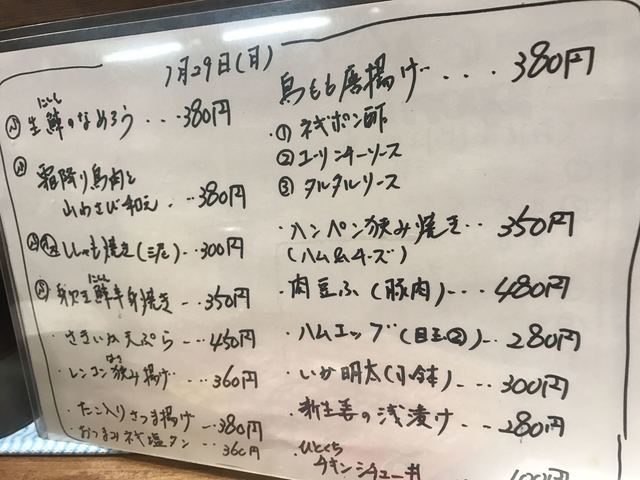 7月29日(月)
にしん
生鯡のなめろう...380円
霜降り鳥肉と
山わさび和え...380円
ししゃも焼き(三尾)...300円
にしん
鯡半身焼き...350円
さきいか天ぷら...450円
はさ
レンコン狭み揚げ...360円
・たこ入りさつま揚げ...380円
・おつまみネギ塩タン 360円
鳥もも唐揚げ....380円
・① ネギポン酢
② ユーリンチーソース
③ タルタルソース
・ハンペン狭み焼き...350円
(ハム&チーズ)
・肉豆ふ(豚肉)...480円
・ハムエッグ(目玉②)...280円
・いか明太(小鉢)...300円
・新生姜の浅漬け...280円
・ひとくち
チキンシチュー